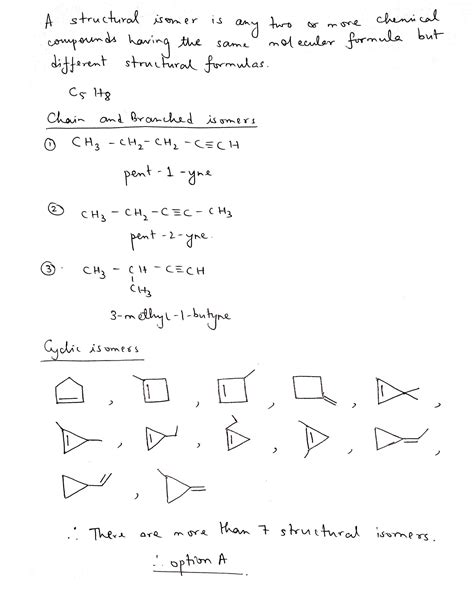 A structural isomer is any two or more chemical
compounds having the same molecular formula but
different structural formulas.
C5 H8
Chain and Branched isomers
① CH3 - CH2 - CH2 - C≡CH
pent-1-yne
② CH3 - CH2 - C≡C - CH3
pent-2-yne.
③. CH3 - CH - C≡CH
CH3
3-methyl-1-butyne
Cyclic isomers
, , , ,
, , , , ,
,
∴ There are more than 7 structural isomers.
∴ option A.